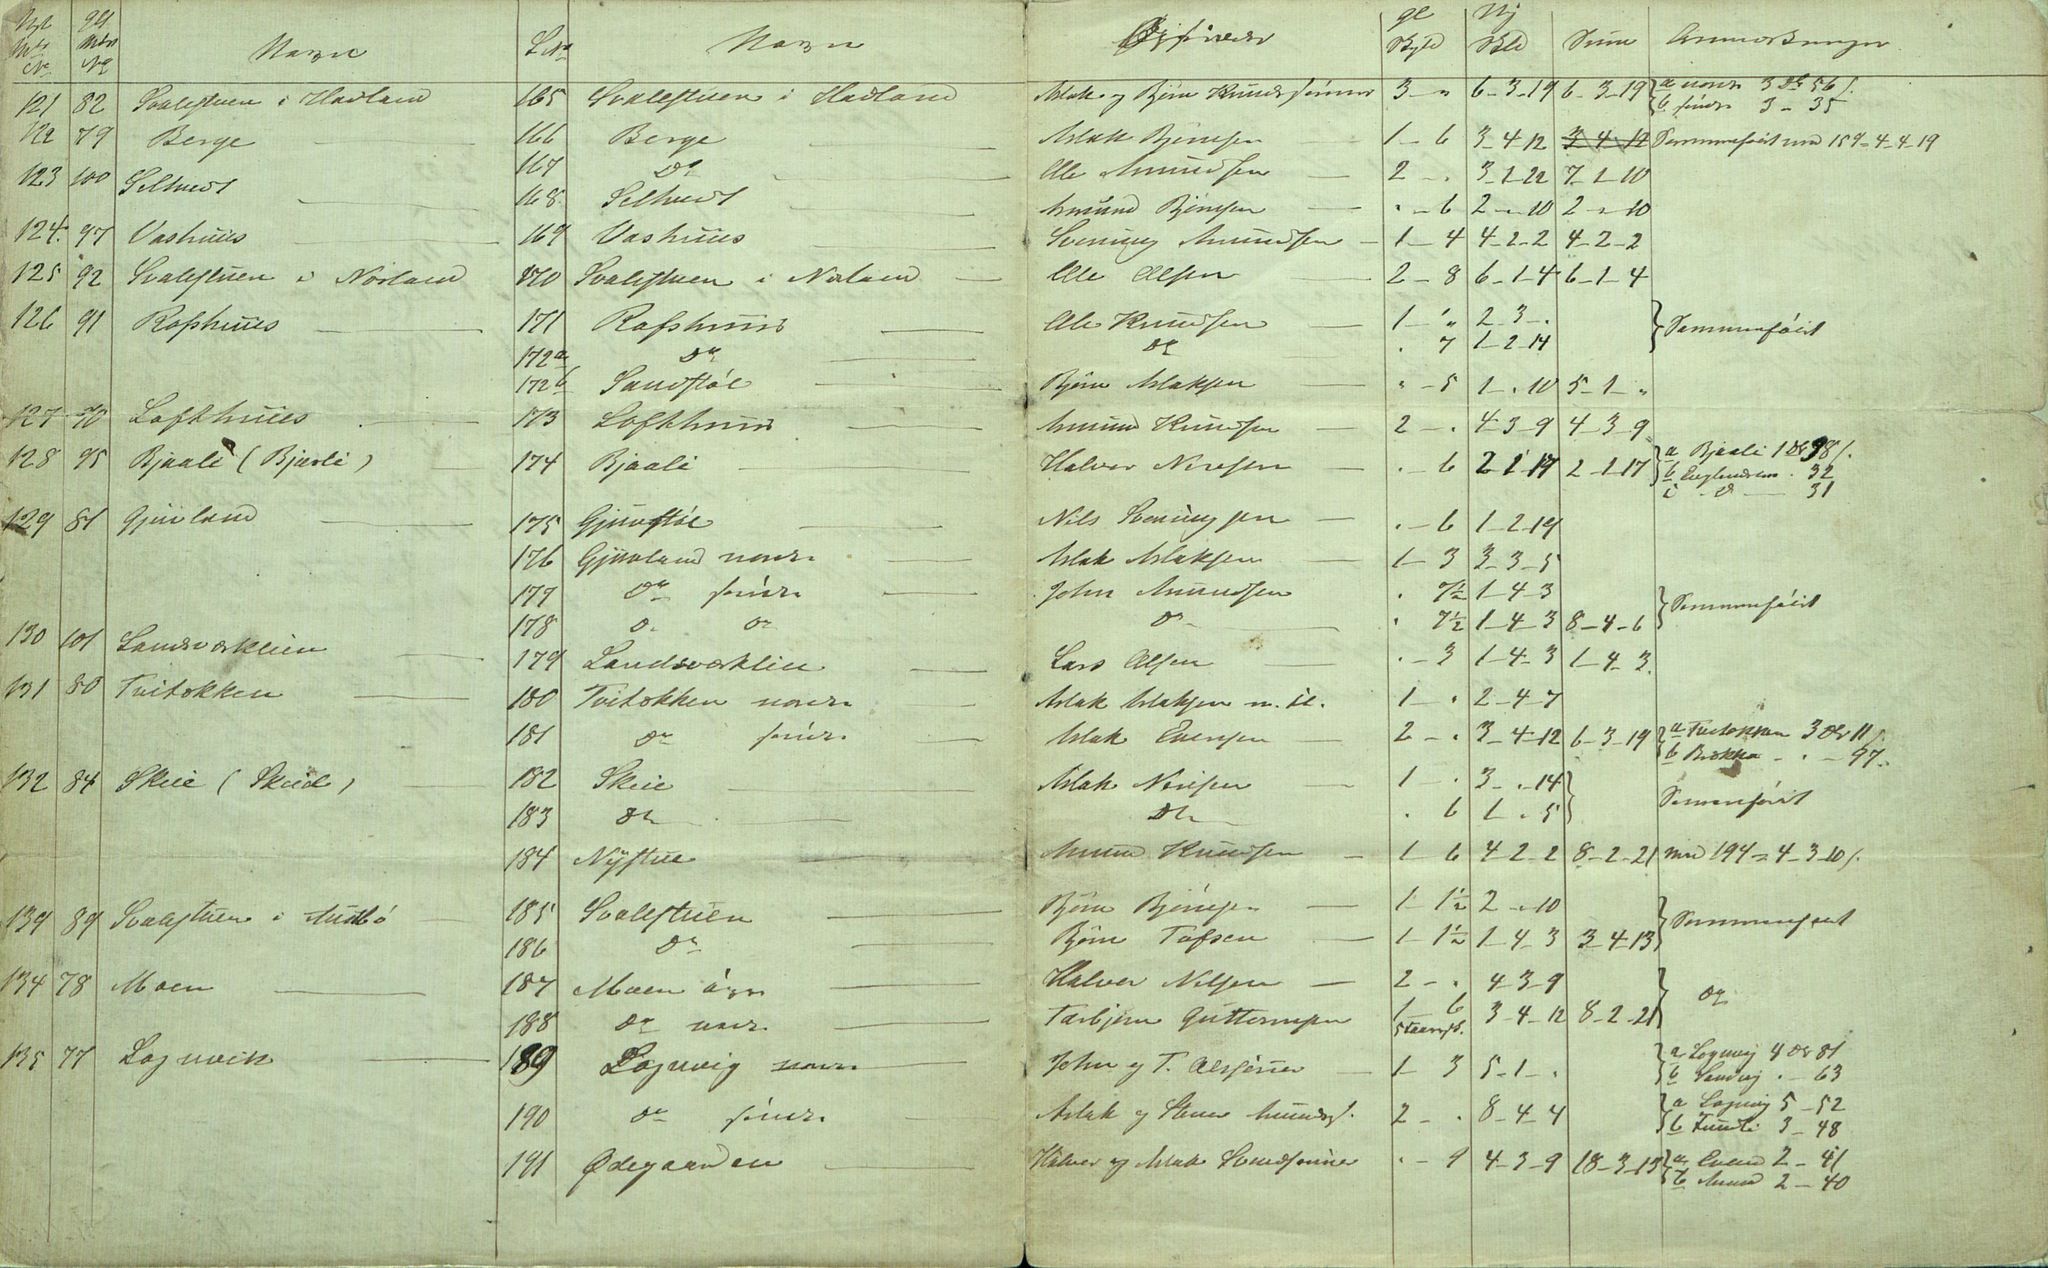 Nyt Mtr No | gl Mtr No | Navn | L No | Navn | Opsidder | gl Skyld | Ny Skld | Sum | Anmærkninger
121 | 82 | Svalestuen i Hadland | 165 | Svalestuen i Hadland | Aslak og Björn Knudssönner | 3 – " | 6-3-19 | 6-3-19 | a nordr 3 Dr 56 s.
b söndr 3 – 35
122 | 79 | Berge | 166 | Berge | Aslak Björnsen | 1 – 6 | 3-4-12 | 3-4-12 | Sammenföiet med 159 = 4-4-19
167 | Do | Ole Amundsen | 2 – . | 3-1-22 | 7-1-10
123 | 100 | Seltvedt | 168 | Seltvedt | Amund Björnsen | . – 6 | 2-.-10 | 2-.-10
124 | 97 | Vashuus | 169 | Vashuus | Svenung Amundsen | 1 – 4 | 4-2-2 | 4-2-2
125 | 92 | Svalestuen i Norland | 170 | Svalestuen i Norland | Ole Olsen | 2 – 8 | 6-1-4 | 6-1-4
126 | 91 | Rofshuus | 171 | Rofshuus | Ole Knudsen | 1 – " | 2-3-. | Sammenföiet
172 a | Do | Do | . 7 | 1-2-14
172 b | Sandstöl | Björn Aslaksen | " – 5 | 1-.-10 | 5-1-"
127 | 70 | Lofthuus | 173 | Lofthuus | Amund Knudsen | 2 – . | 4-3-9 | 4-3-9
128 | 95 | Bjaali (Bjærli) | 174 | Bjaali | Halvor Neresen | . – 6 | 2-1-17 | 2-1-17 | a Bjaali 1 Dr 98 s.
b . 32
c Do – 31
129 | 81 | Gjuvland | 175 | Gjuvstöl | Nils Svenungsen | . – 6 | 1-2-19
176 | Gjuvland nordr | Aslak Aslaksen | 1 – 3 | 3-3-5
177 | Do söndr | John Amundsen | . 7½ | 1-4-3 | Sammenföiet
178 | Do Do | Do | . 7½ | 1-4-3 | 8-4-6
130 | 101 | Landsverklien | 179 | Landsverklien | Lars Olsen | . – 3 | 1-4-3 | 1-4-3
131 | 80 | Tveitokken | 180 | Tveitokken nordr | Aslak Aslaksen m. fl. | 1 – . | 2-4-7
181 | Do söndr | Aslak Evensen | 2 – . | 3-4-12 | 6-3-19 | a Tveitokken 3 Dr 11 s.
b Brokka – . – 97.
132 | 84 | Skeie (Skeid) | 182 | Skeie | Aslak Neresen | 1 – . | 3-.-14 | Sammenföiet
183 | Do | Do | . 6 | 1-.-5
184 | Nystue | Amund Knudsen | 1 – 6 | 4-2-2 | 8-2-21 | med 194 = 4-3-10 s.
139 | 89 | Svalestuen i Midbö | 185 | Svalestuen | Björn Björnsen | 1 – 1½ | 2-.-10 | Sammenföiet
186 | Do | Björn Tofsen | 1 – 1½ | 1-4-3 | 3-4-13
134 | 78 | Moen | 187 | Moen övr | Halvor Nilsen | 2 – . | 4-3-9 | Do
188 | Do nedr | Torbjörn Guttormsen | 1 – 6 | 3-4-12 | 8-2-21
135 | 77 | Lognvik | 189 | Lognvig nordr | John og T. Olssönner | 1 – 3 | 5-1-. | a Lognvig 4 Dr 81
b Sandvig . – 63
190 | Do söndr | Aslak og Steinar Amunds. | 2 – . | 8-4-4 | a Lognvig 5 – 52
b 3 – 48
191 | Ødegaarden | Halvor og Aslak Svendsönner | . – 9 | 4-3-9 | 18-3-13 | a 2 – 41
b 2 – 40